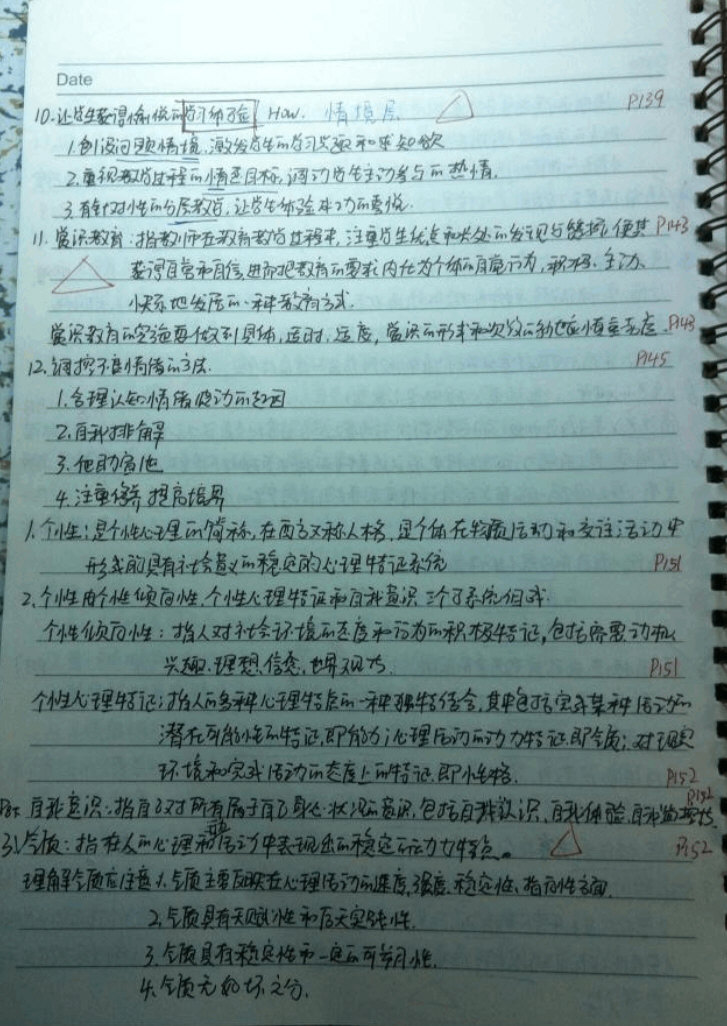 Date
10. 让学生获得愉悦的学习体验 How. 情境层 P139
1. 创设问题情境, 激发学生的学习兴趣和求知欲
2. 重视教学过程的情感目标, 调动学生主动参与的热情.
3. 有针对性的分层教学, 让学生体验成功的喜悦.
11. 赏识教育: 指教师在教育教学过程中, 注重学生优点和长处的发现与发挥, 使其 P143
获得自尊和自信, 进而把教育的要求内化为个体的自觉行为, 积极、主动、
快乐地发展的一种教育方式.
赏识教育的实施要做到具体, 适时, 适度, 赏识的形式和次数的 慎重 . P143
12. 调控不良情绪的方法. P145
1. 合理认知情绪波动的起因
2. 自我排解
3. 他助宣泄
4. 注重修养 提高境界
1. 个性: 是个性心理的简称, 在西方又称人格, 是个体在物质活动和交往活动中
形成的具有社会意义的稳定的心理特征系统 P151
2. 个性由个性倾向性、个性心理特征和自我意识三个子系统组成.
个性倾向性: 指人对社会环境的态度和行为的积极特征, 包括需要、动机、
兴趣、理想、信念、世界观为. P151
个性心理特征: 指人的多种心理特点的一种独特结合, 其中包括完成某种活动的
潜在可能性的特征, 即能力; 心理活动的动力特征, 即气质; 对现实
环境和完成活动的态度上的特征, 即性格. P152
自我意识: 指自己对所有属于自己身心状况的意识, 包括自我认识、自我体验、自我监控 P152
3. 气质: 指在人的心理和活动中表现出的稳定的动力特点。 P152
理解气质应注意 1. 气质主要反映在心理活动的速度, 强度, 稳定性, 指向性方面.
2. 气质具有天赋性和后天实践性.
3. 气质具有稳定性和一定的可塑性.
4. 气质无好坏之分.